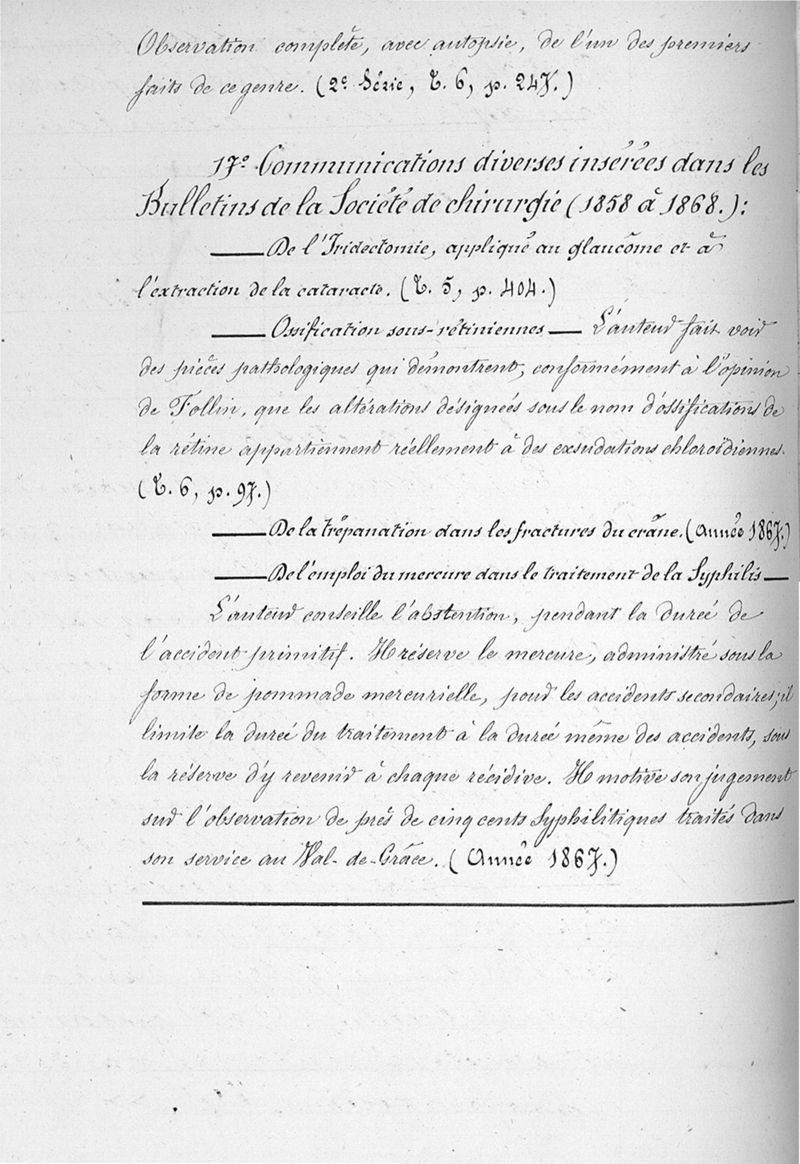 Observation complète, avec autopsie, de l'un des premiers
faits de ce genre. (2e Série, T. 6, p. 247.)
17º Communications diverses insérées dans les
Bulletins de la Société de chirurgie (1858 à 1868.):
— De l'Iridectomie, appliqué au glaucôme et à
l'extraction de la cataracte. (T. 5, p. 404.)
— Ossification sous-rétiniennes — L'auteur fait voir
des pièces pathologiques qui démontrent, conformément à l'opinion
de Follin, que les altérations désignées sous le nom d'ossifications de
la rétine appartiennent réellement à des exsudations chloroïdiennes.
(T. 6, p. 97.)
— De la trépanation dans les fractures du crâne. (Année 1867.)
— De l'emploi du mercure dans le traitement de la Syphilis —
L'auteur conseille l'abstention, pendant la durée de
l'accident primitif. Il réserve le mercure, administré sous la
forme de pommade mercurielle, pour les accidents secondaires; il
limite la durée du traitement à la durée même des accidents, sous
la réserve d'y revenir à chaque récidive. Il motive son jugement
sur l'observation de près de cinq cents Syphilitiques traités dans
son service au Val-de-Grâce. (Année 1867.)